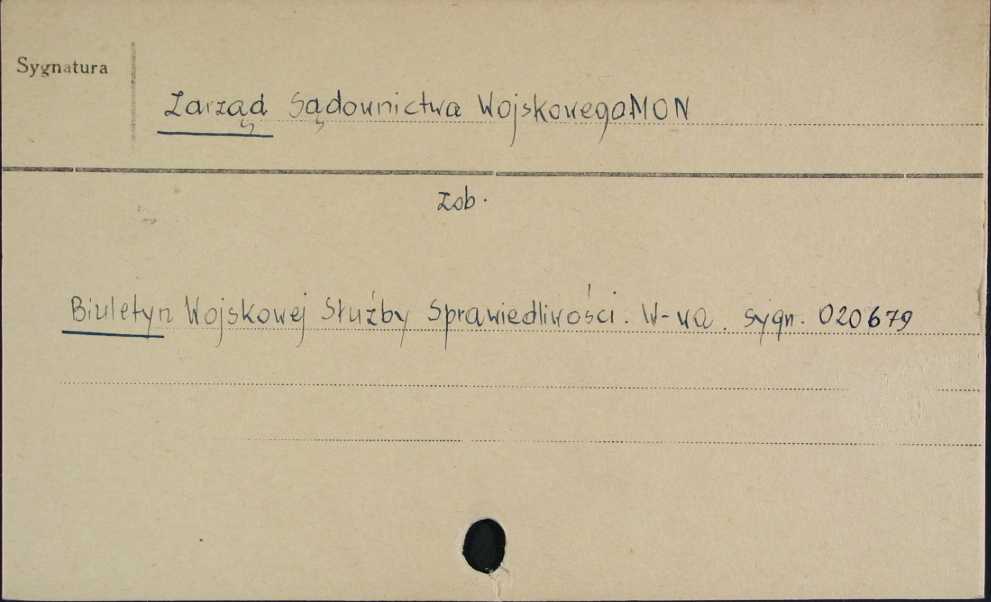 Sygnatura
Zarząd Sądownictwa Wojskowego MON
zob.
Biuletyn Wojskowej Służby Sprawiedliwości. W-wa. sygn. 020679